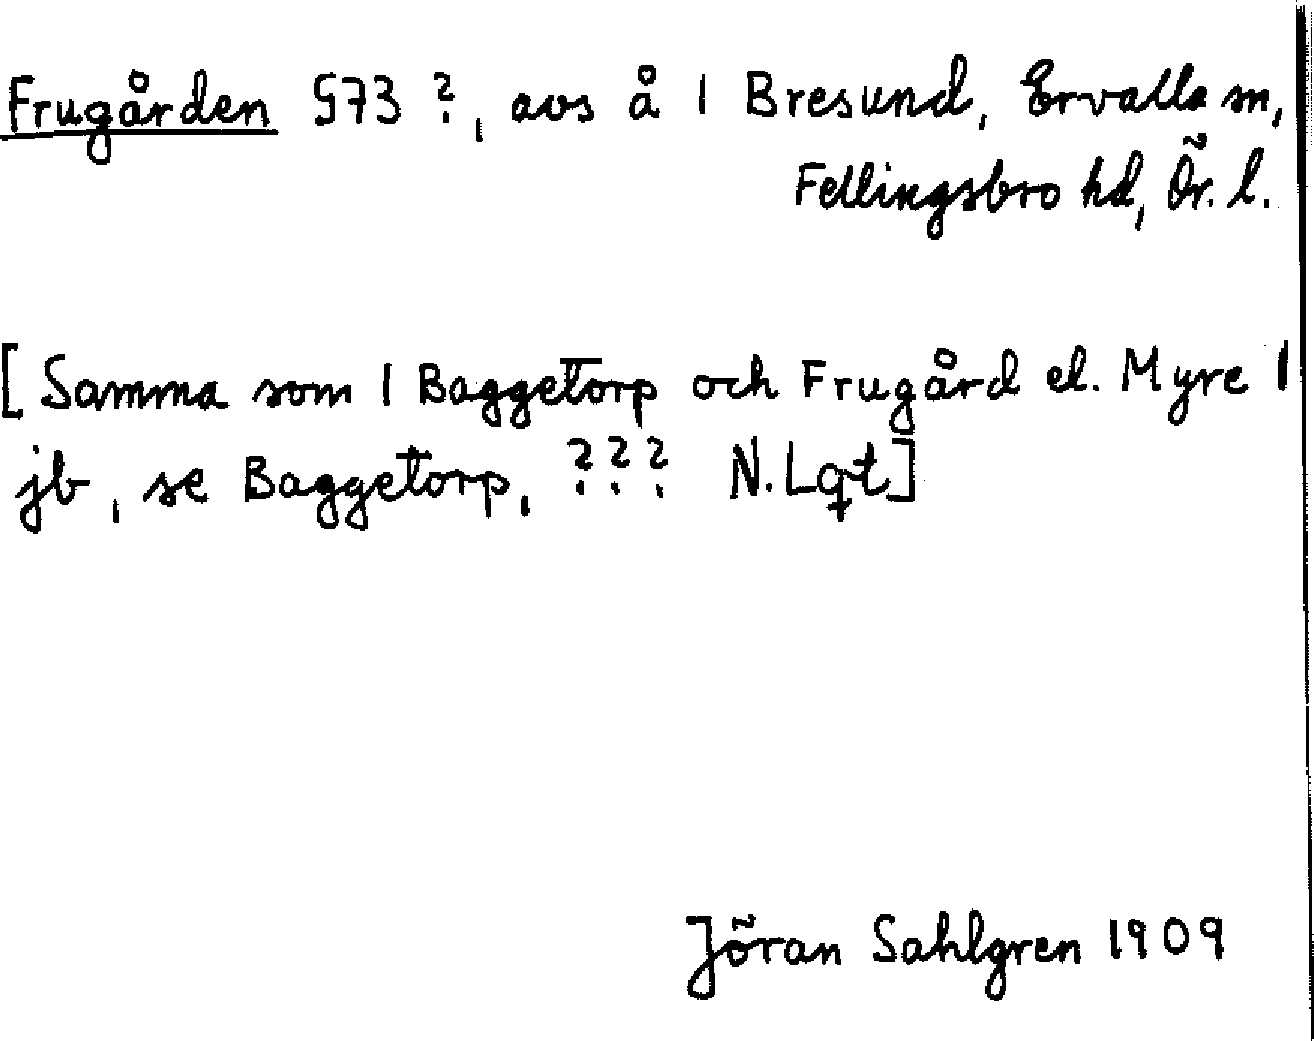 Frugården 573 ?, avs å 1 Bresund, Ervalla sn,
Fellingsbro hd, Ör. l.
[ Samma som 1 Baggetorp och Frugård el. Myre 1
jb, se Baggetorp, ??? N. Lqt]
Jöran Sahlgren 1909